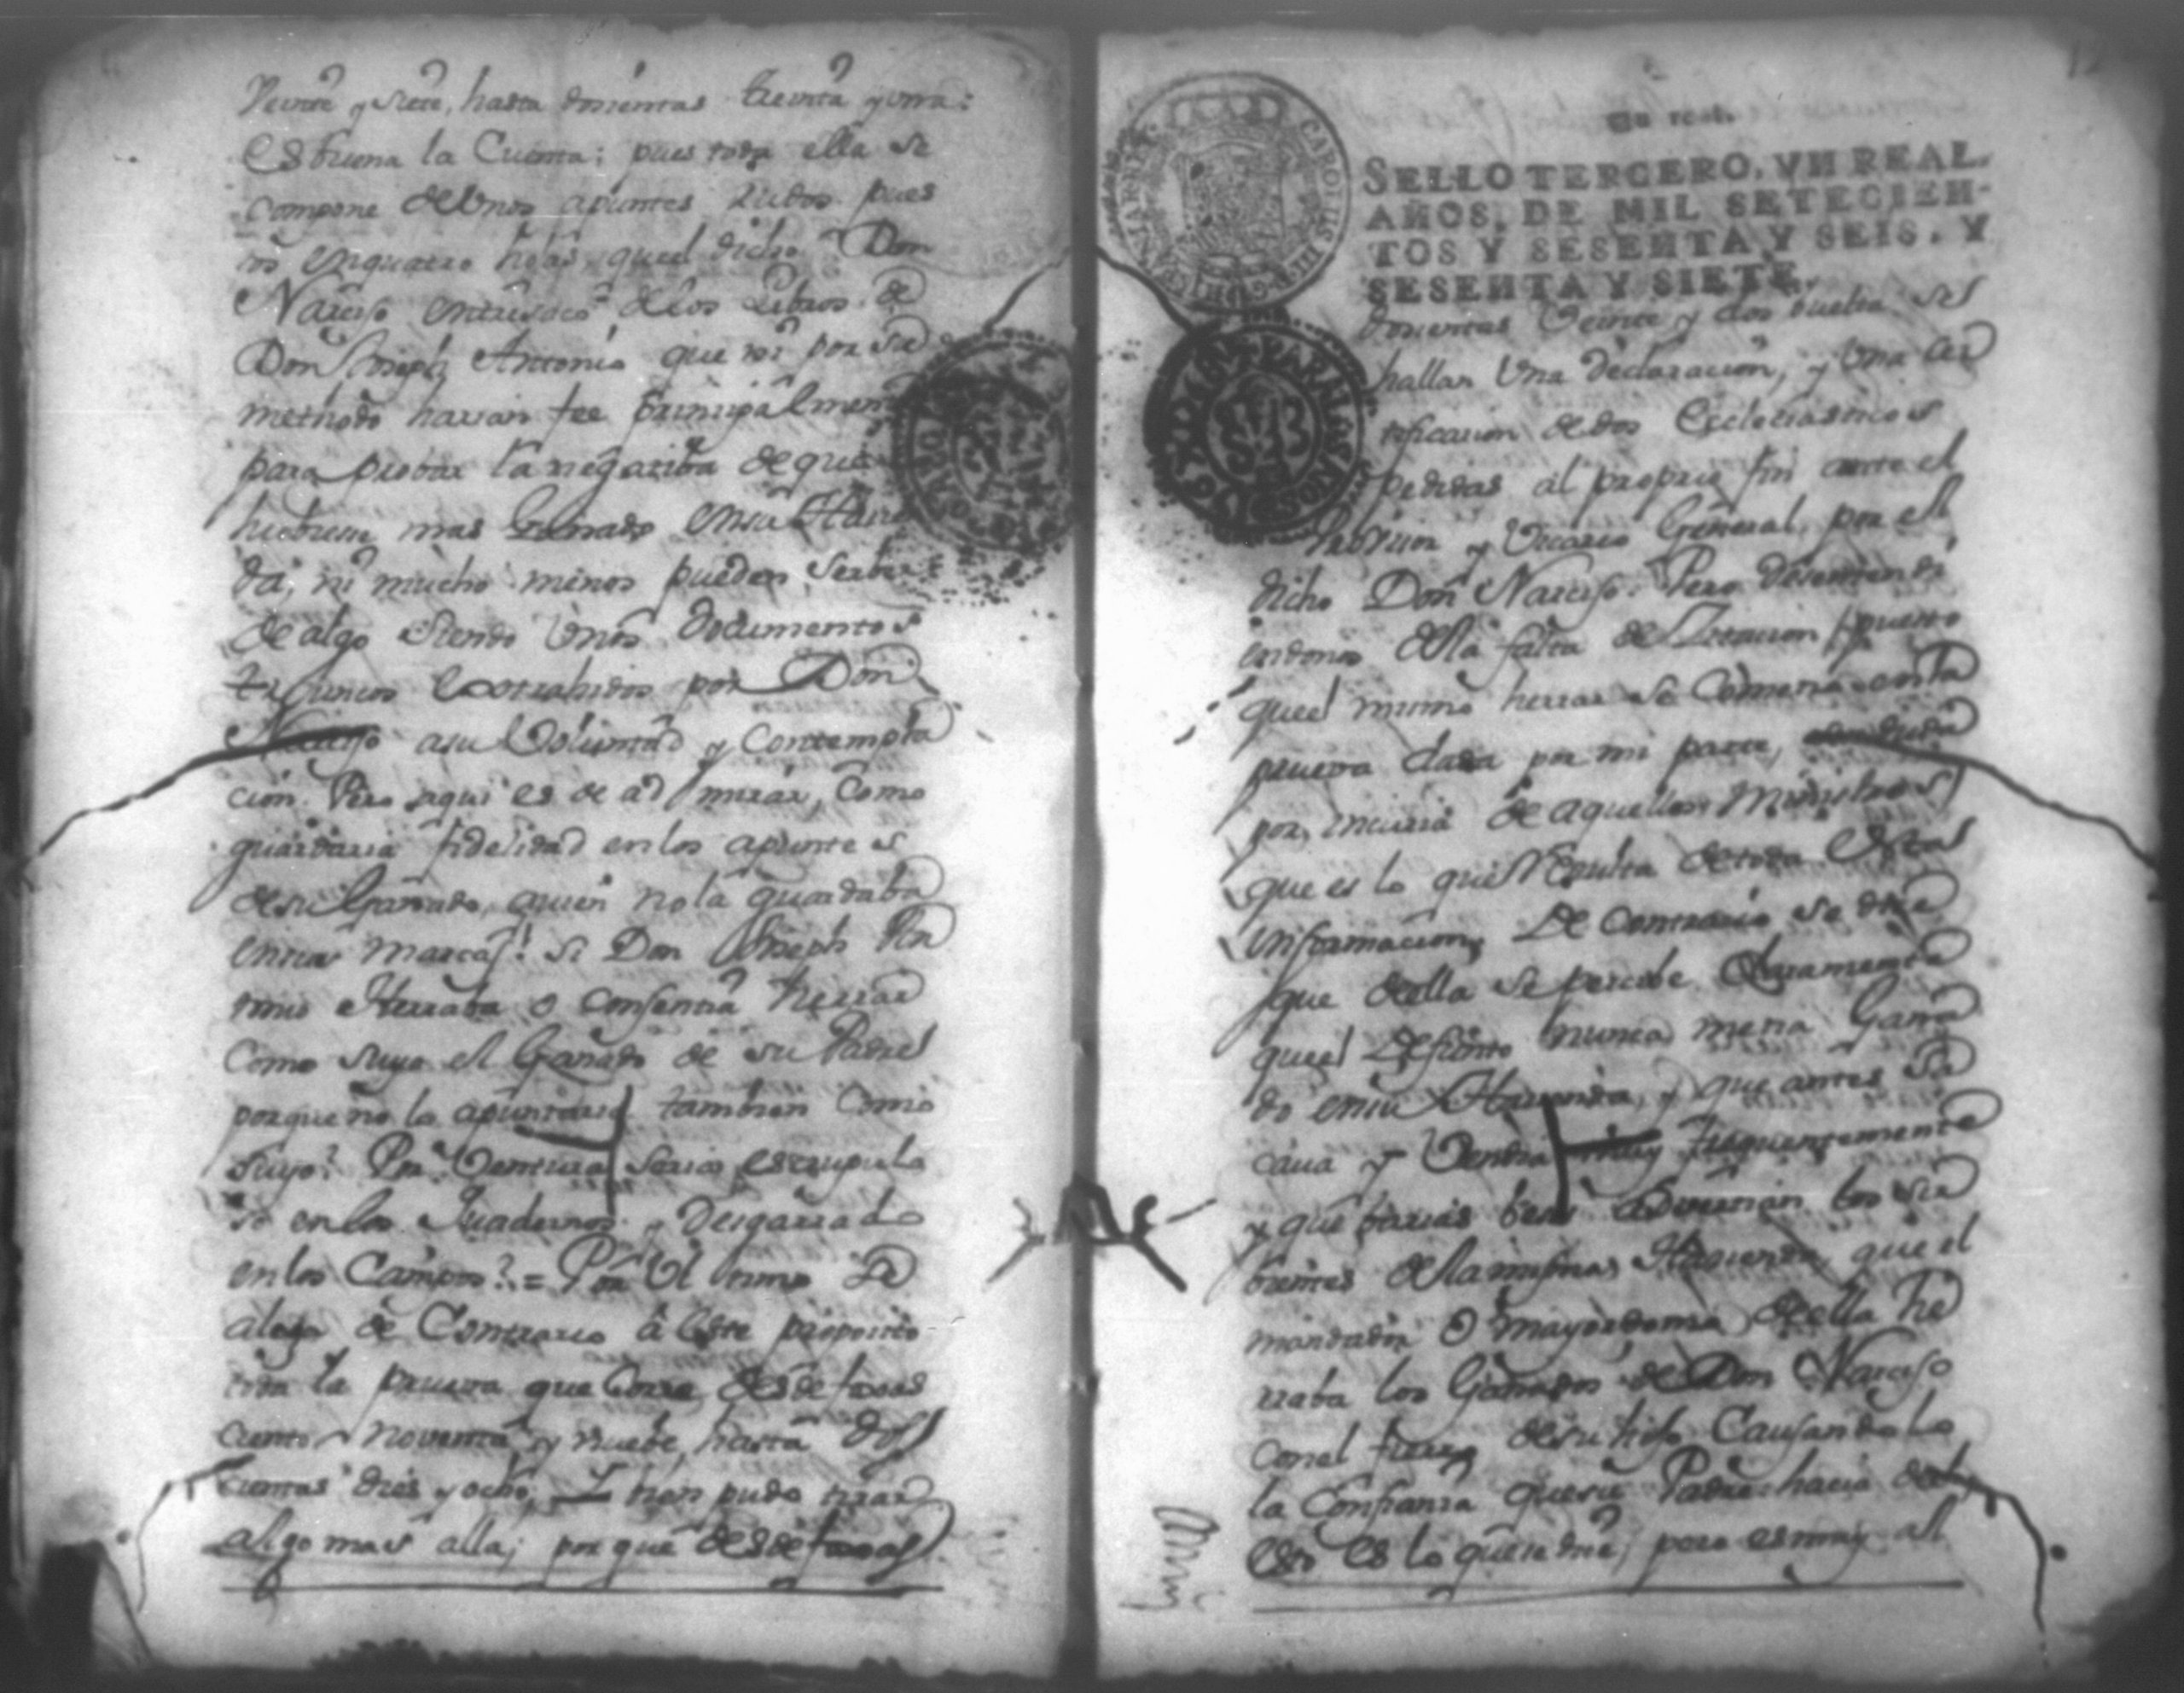 Veinte y siete, hasta doscientas treinta y una:
es buena la Cuenta: pues toda ella se
compone de Unos apuntes rudos pues
en quatro hojas, que el dicho Don
Narciso de los Libros de
Don Joseph Antonio que ni por su
methodo harian fee principalmen
para probar la negativa de que
hubiese mas Ganado en su Hacien
da, ni mucho menos pueden serbir
de algo siendo Unos documentos
extrahidos por Don
Narciso a su Voluntad y Contempla
cion. Pero aqui es de ad mirar, Como
guardaria fidelidad en los apuntes
de su Ganado, quien no la guardaba
en las Marcas! Si Don Joseph An
tonio Herraba o Consentia herrar
Como suyo el Ganado de su Padre
porque no lo apuntaria tambien Como
suyo? Por Ventura seria escrupulo
so en los Quadernos y Desgarrado
en los Campos? = Por Ul timo Se
alega de Contrario â este proposito
toda la prueva que Corre desde foxas
ciento noventa y nuebe, hasta Dos
cientas dies y ocho, Y bien pudo tirar
algo mas alla; por que desde foxas
Un real.
SELLO TERCERO, VN REAL,
AÑOS, DE MIL SETECIEN-
TOS Y SESENTA Y SEIS, Y
SESENTA Y SIETE.
CAROLUS III
doscientas Veinte y dos buelta se
hallan Una declaracion, y Una Cer
tificacion de dos Ecclesiasticos
pedidas al proprio fin ante el
Provisor y Vicario General, por el
dicho Don Narciso. Pero desentendi
endonos de la falta de Zitacion, puesto
que el mismo herror se Cometio en la
prueva dada por mi parte,
por incuria de aquellos Ministros
que es lo que Resulta de toda Estas
informacion, De Contrario se dice
que de ella se percibe Claramente
que el Defunto nunca metia Gana
do en su Hacienda, y que antes Sa
caua y Vendia muy frequentemente
y que varias beses advertian los sir
bientes de la misma Hacienda que el
mandador o Mayordomo de ella he
rraba los Ganados de Don Narciso
con el fierro de su hijo Causandolo
la Confianza que su Padre hacia del
esto es lo que se dice, pero es muy al